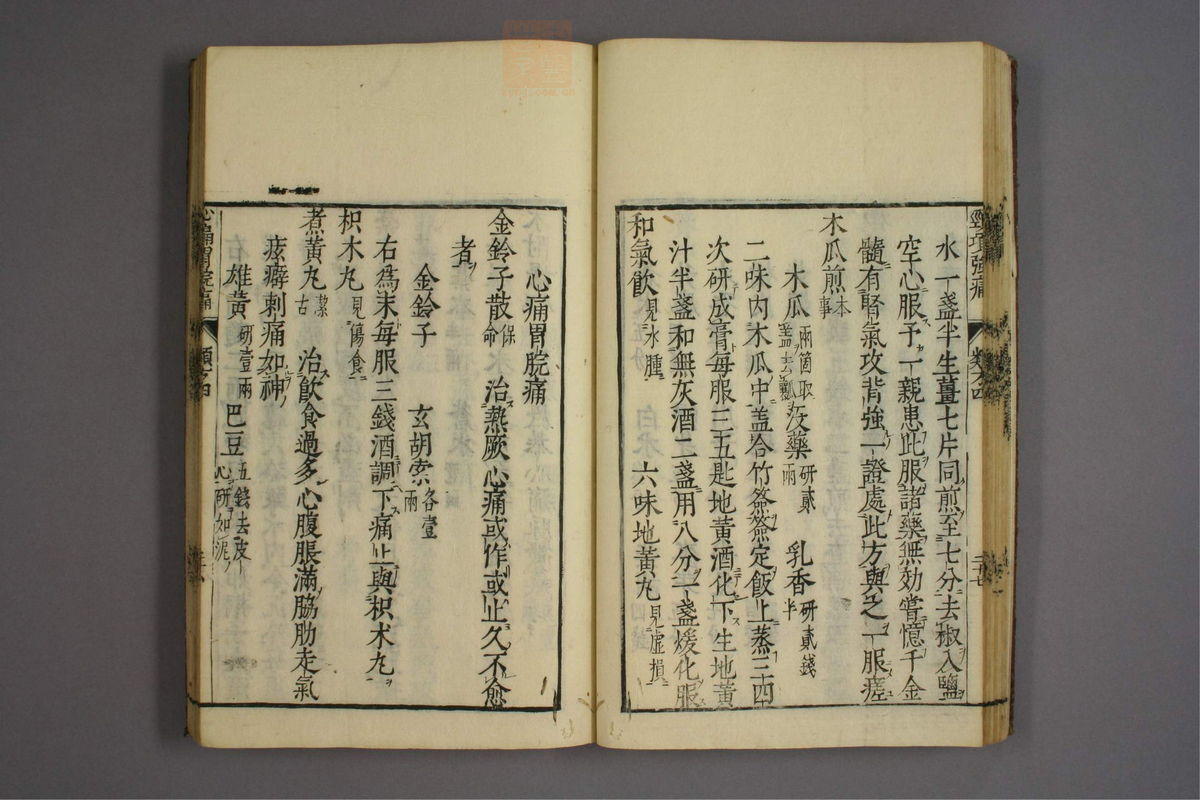 頸項強痛
類方四
水一盞半生薑七片同煎至七分去椒入鹽
空心服予一親患此服諸藥無効嘗憶千金
髓有腎氣攻背強一證處此方與之一服瘥
木瓜煎本事
木瓜兩箇取蓋去瓤 沒藥研貳兩 乳香研貳錢半
二味內木瓜中蓋合竹簽簽定飯上蒸三四
次研成膏每服三五匙地黃酒化下生地黃
汁半盞和無灰酒二盞用八分一盞煖化服
和氣飲見水腫 六味地黃丸見虛損
心痛胃脘痛
金鈴子散保命 治熱厥心痛或作或止久不愈
者
金鈴子 玄胡索各壹兩
右爲末每服三錢酒調下痛止與枳朮丸
枳朮丸見傷食
煮黃丸潔古 治飲食過多心腹脹滿脇肋走氣
痃癖刺痛如神
雄黃研壹兩 巴豆五錢去皮心研如泥
心痛胃脘痛
類方四